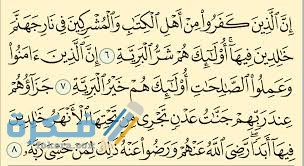 إِنَّ ٱلَّذِينَ كَفَرُوا۟ مِنْ أَهْلِ ٱلْكِتَٰبِ وَٱلْمُشْرِكِينَ فِى نَارِ جَهَنَّمَ
خَٰلِدِينَ فِيهَآ أُو۟لَٰٓئِكَ هُمْ شَرُّ ٱلْبَرِيَّةِ ٦ إِنَّ ٱلَّذِينَ ءَامَنُوا۟
وَعَمِلُوا۟ ٱلصَّٰلِحَٰتِ أُو۟لَٰٓئِكَ هُمْ خَيْرُ ٱلْبَرِيَّةِ ٧ جَزَآؤُهُمْ
عِندَ رَبِّهِمْ جَنَّٰتُ عَدْنٍ تَجْرِى مِن تَحْتِهَا ٱلْأَنْهَٰرُ خَٰلِدِينَ
فِيهَآ أَبَدًا رَّضِىَ ٱللَّهُ عَنْهُمْ وَرَضُوا۟ عَنْهُ ذَٰلِكَ لِمَنْ خَشِىَ رَبَّهُۥ ٨
فكرة